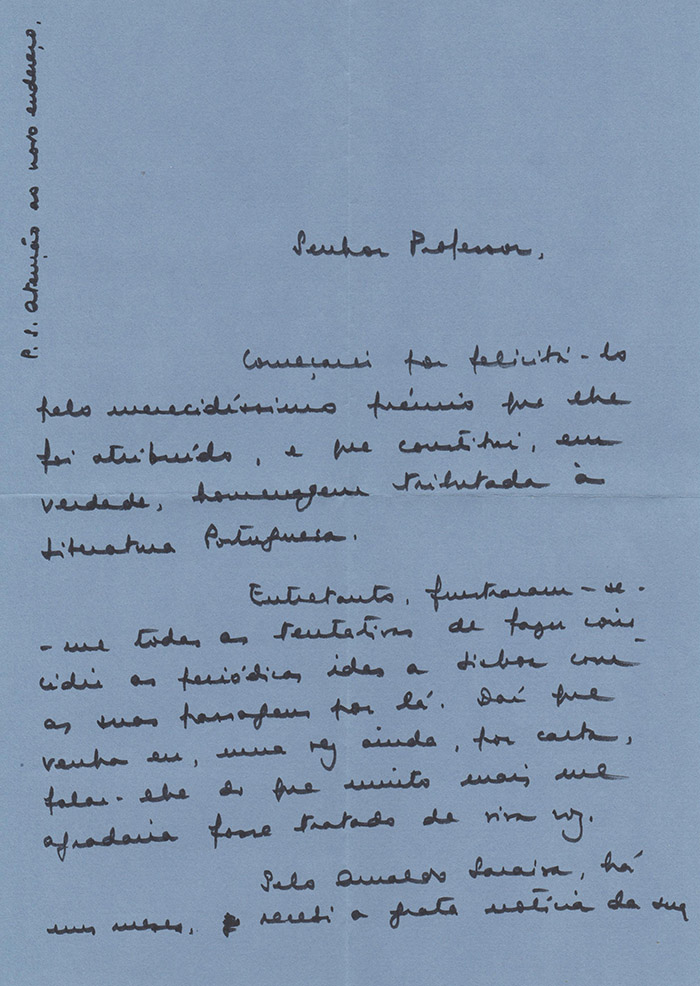 P. S. Atenção ao novo endereço.
Senhor Professor,
Começarei por felicitá-lo
pelo merecidíssimo prémio que lhe
foi atribuído, e que constitui, em
verdade, homenagem tributada à
Literatura Portuguesa.
Entretanto, frustraram-se-
-me todas as tentativas de fazer coin-
cidir as periódicas idas a Lisboa com
as suas passagens por lá. Daí que
venha eu, uma vez ainda, por carta,
falar-lhe do que muito mais me
agradaria fosse tratado de viva voz.
Pelo Arnaldo Saraiva, há
uns meses, recebi a grata notícia da sua